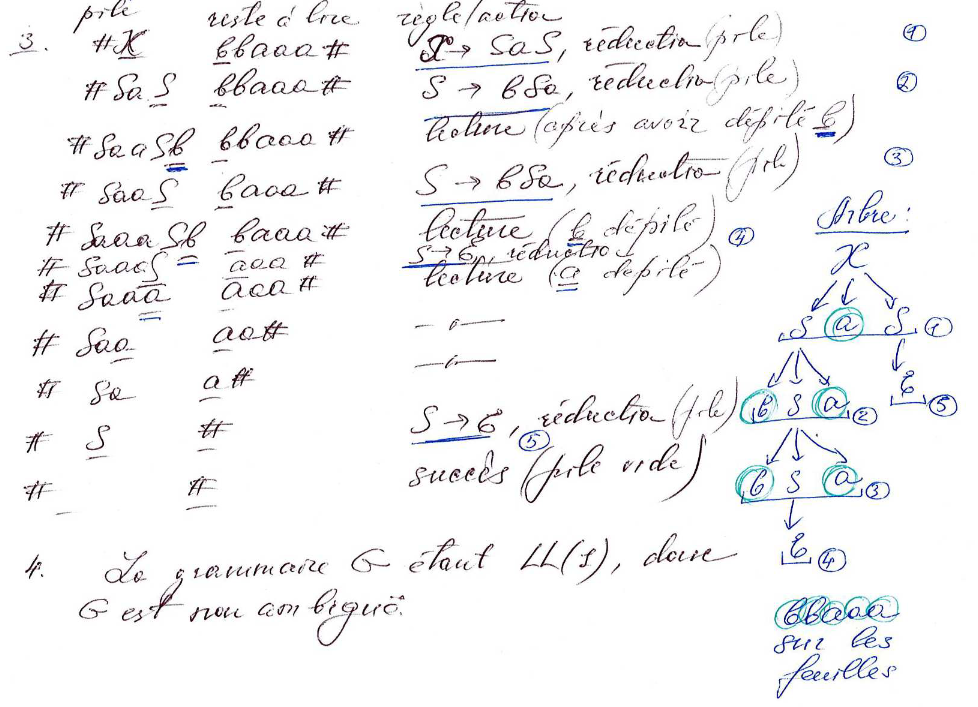 pile reste à lire règle/action
3. #X bbaaa# X → SaS, réduction (pile) ①
#SaS bbaaa# S → bSa, réduction (pile) ②
#SaaSb bbaaa# lecture (après avoir depilé b)
#SaaS baaa# S → bSa, réduction (pile) ③
#SaaaSb baaa# lecture (b dépilé)
#SaaaS aaa# S → ε, réduction ④
#Saaa aaa# lecture (a depilé)
#Saa aa# —„—
#Sa a# —„—
#S # S → ε, réduction (pile) ⑤
# # succès (pile vide)
4. La grammaire G étant LL(1), donc
G est non ambiguë.
Arbre:
X
S a S ①
b S a ② ε ⑤
b S a ③
ε ④
bbaaa
sur les
feuilles